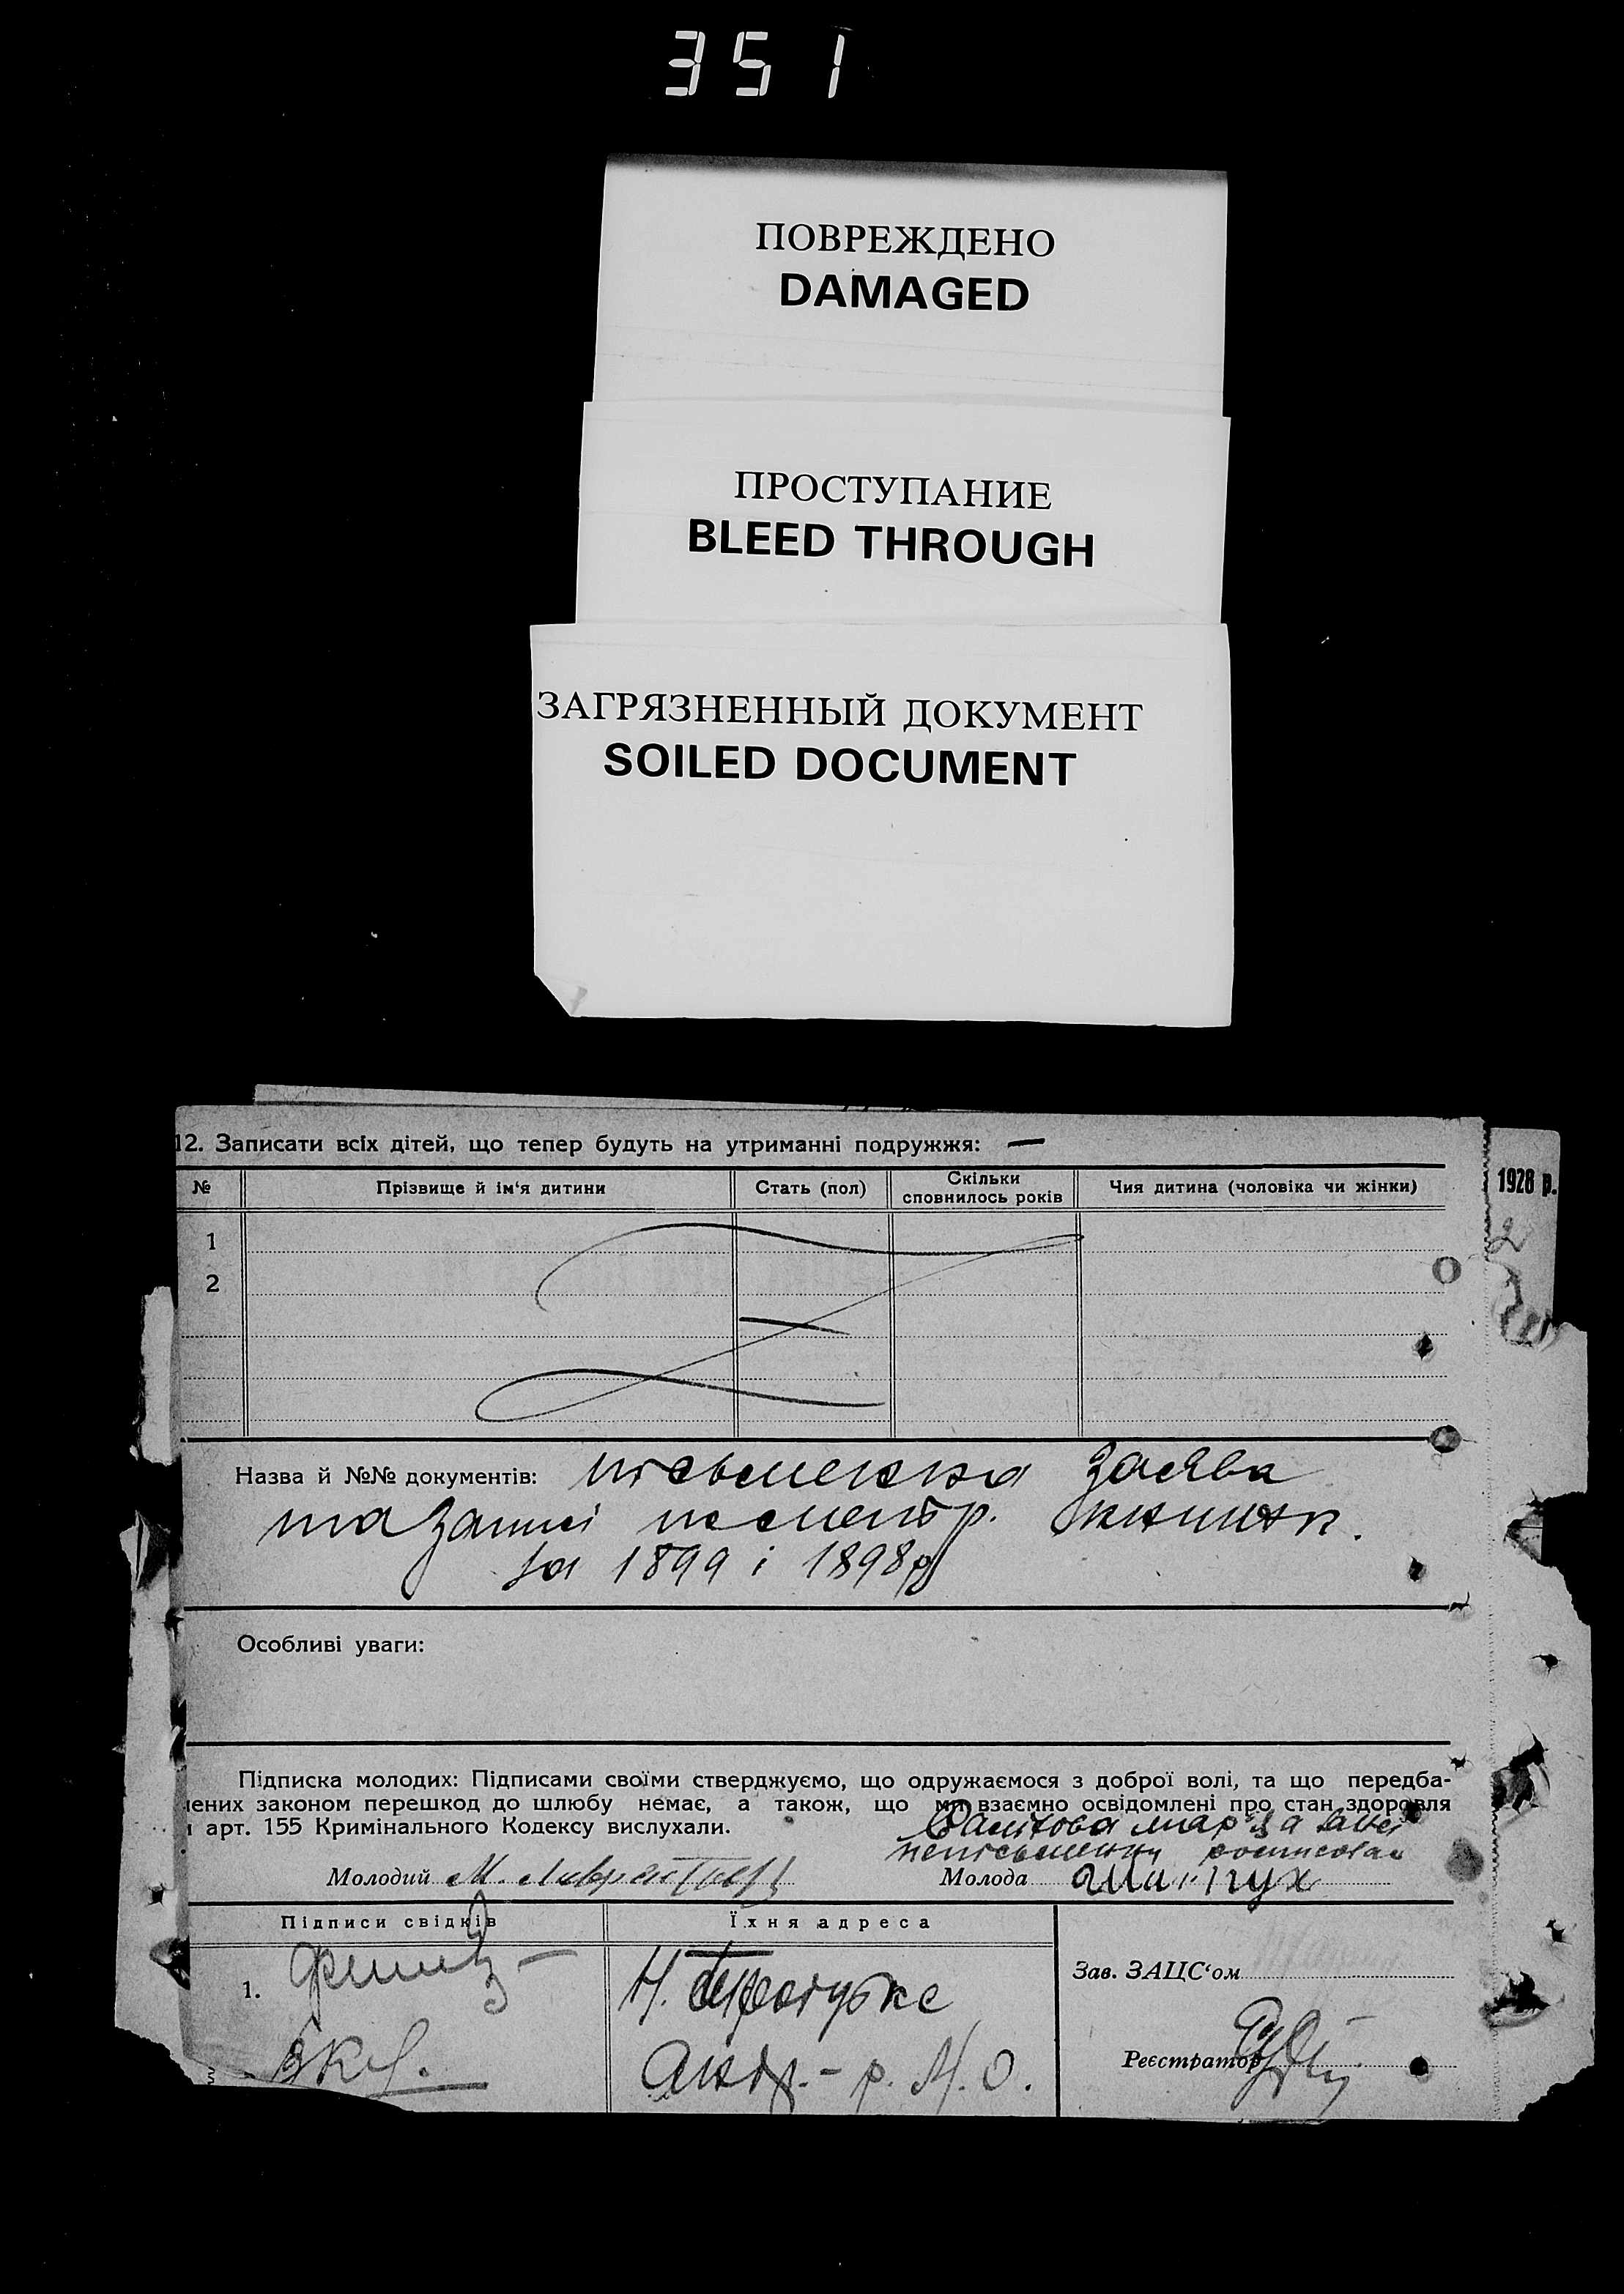 351
ПОВРЕЖДЕНО
DAMAGED
ПРОСТУПАНИЕ
BLEED THROUGH
ЗАГРЯЗНЕННЫЙ ДОКУМЕНТ
SOILED DOCUMENT
12. Записати всіх дітей, що тепер будуть на утриманні подружжя: —
1928 р.
№ Прізвище й ім‘я дитини Стать (пол) Скільки сповнилось років Чия дитина (чоловіка чи жінки)
1
2
Назва й №№ документів: письменна заява
та записі книжк.
за 1899 і 1898 р
Особливі уваги:
Підписка молодих: Підписами своїми стверджуємо, що одружаємося з доброї волі, та що передба-
чених законом перешкод до шлюбу немає, а також, що ми взаємно освідомлені про стан здоровля
арт. 155 Кримінального Кодексу вислухали.
Молодий М. Молода
Підписи свідків Їхня адреса
1. Н.
Зав. ЗАЦС‘ом
р. М. О.
Реєстратор